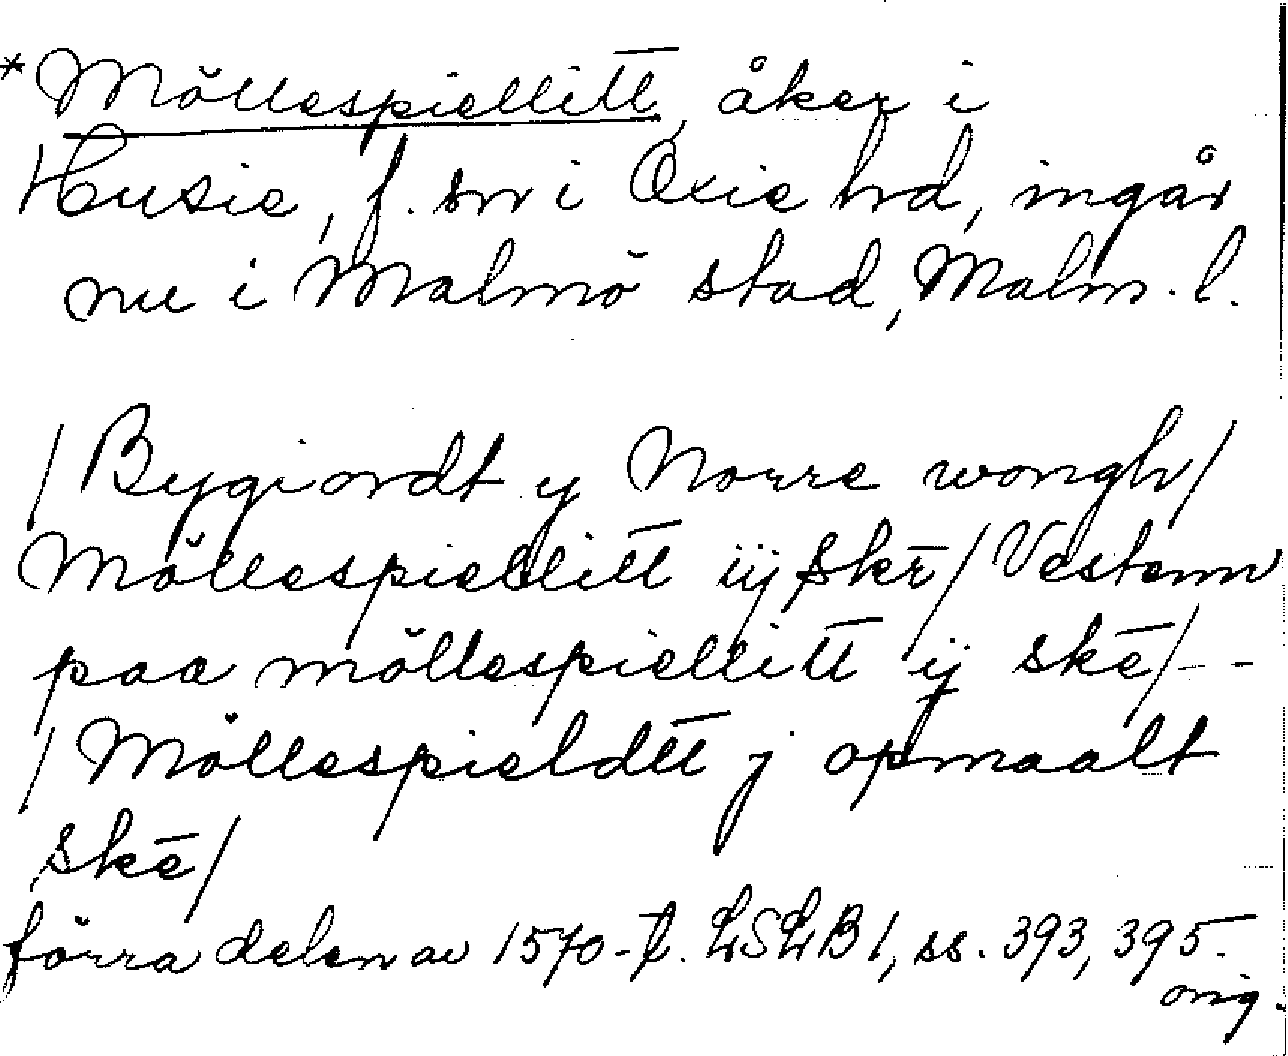 *Möllespiellitt, åker i
Husie, f. sn i Oxie hd, ingår
nu i Malmö stad, Malm. l.
/ Bygiordt y Norre wongh/
Möllespiellitt iij skē/ Vestenn
paa möllespiellitt ij skē/ - -
/ Möllespieldtt j opmaalt
skē/
förra delen av 1570-t. LSLB 1, ss. 393, 395.
orig.